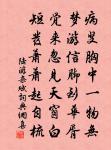 病叟胸中一物無
夢游信腳到華胥
覺來忽見天窗白
短髮蕭蕭起自梳
陸游詞典網